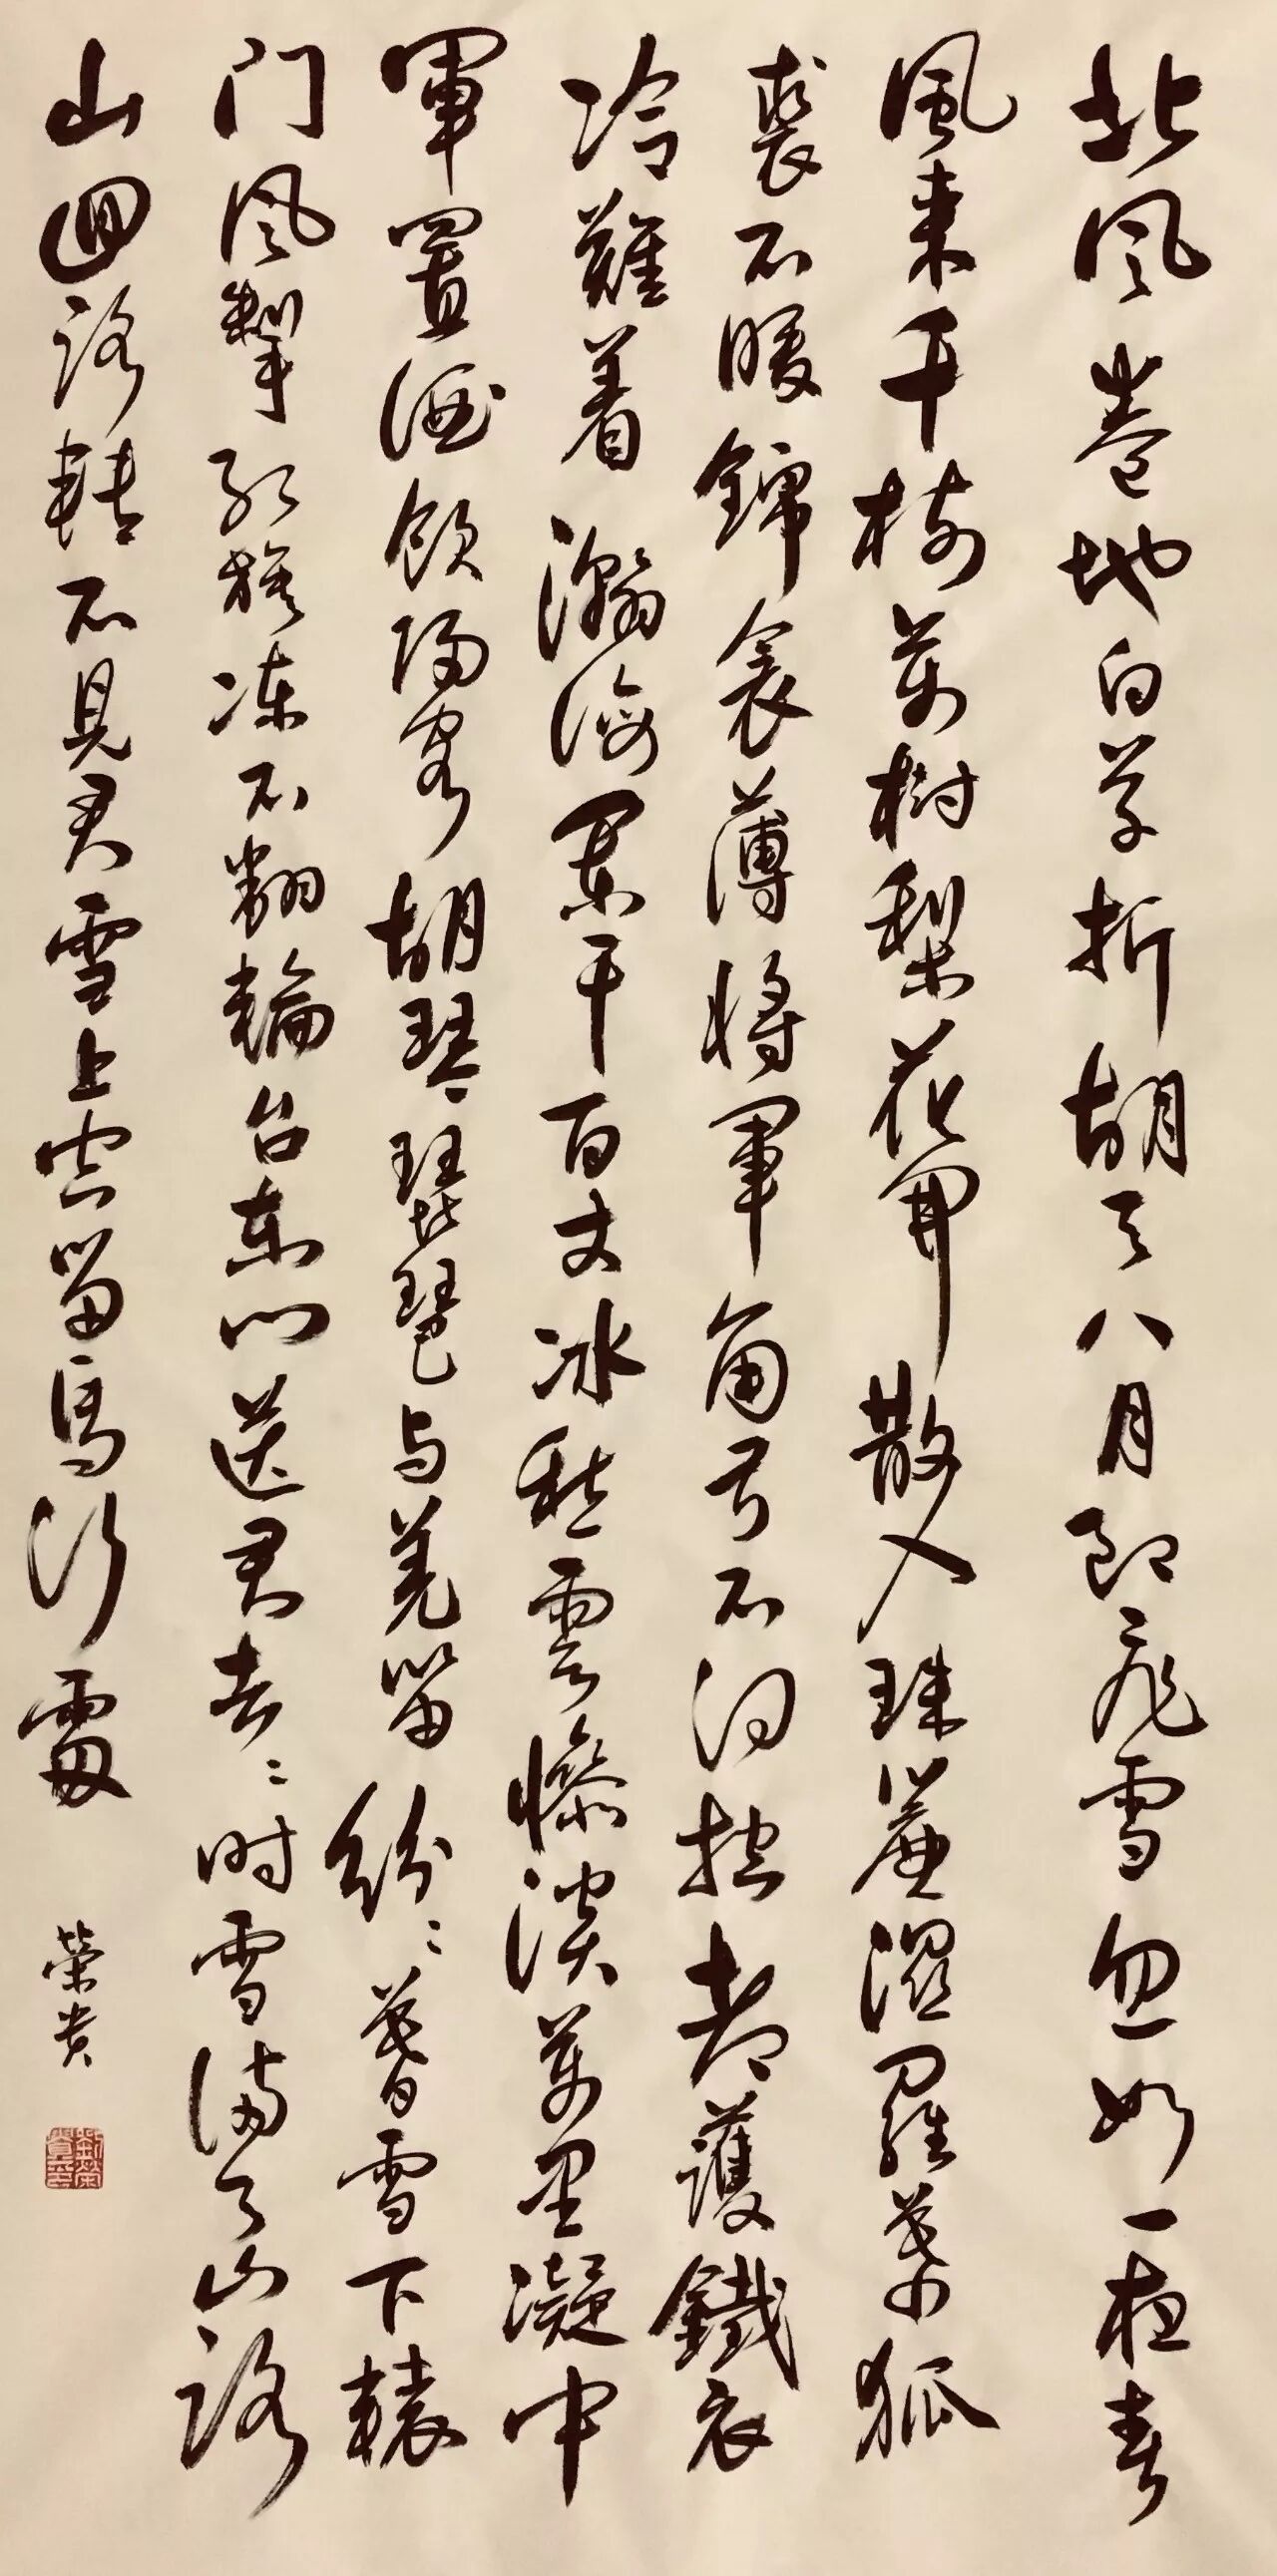 北风卷地白草折胡天八月即飛雪忽如一夜春
風来千樹萬樹梨花開散入珠簾濕羅幕狐
裘不暖錦衾薄將軍角弓不得控都護鐵衣
冷難着瀚海闌干百丈冰愁雲慘淡萬里凝中
軍置酒飲歸客胡琴琵琶与羌笛紛〻暮雪下轅
门风掣红旗冻不翻輪台东门送君去〻时雪满天山路
山回路轉不見君雪上空留馬行處
荣贵